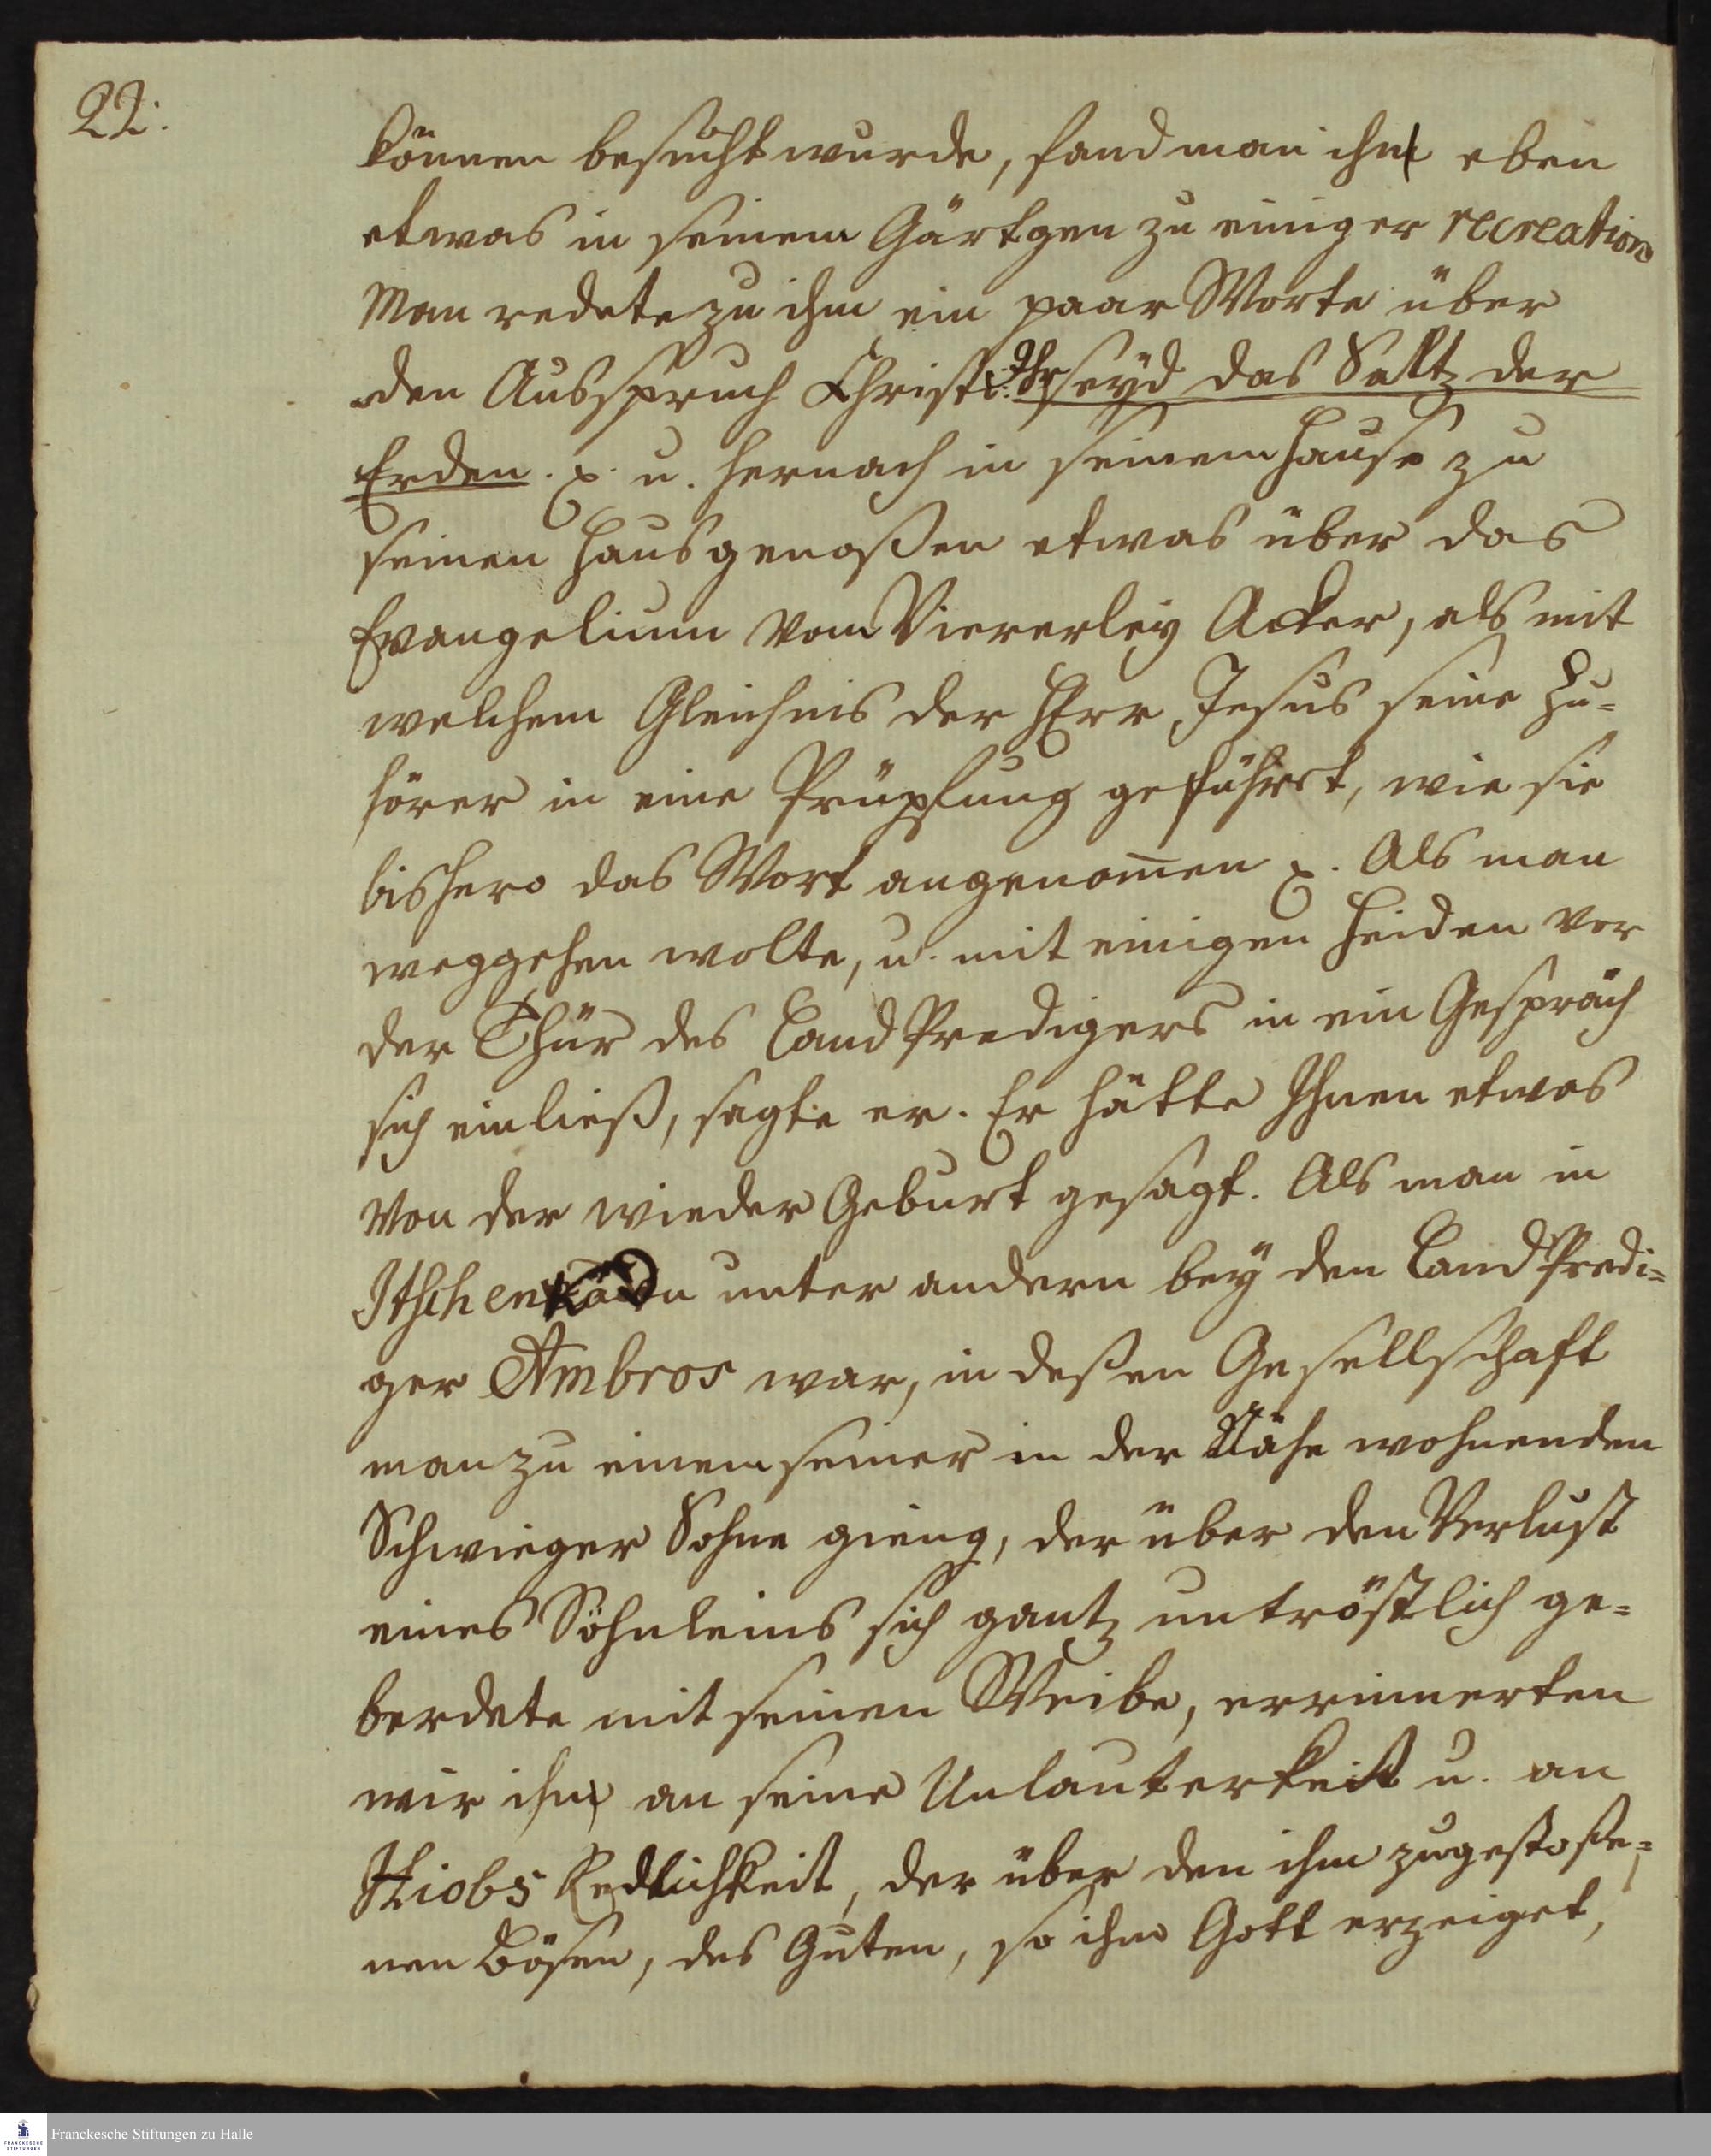 22.
können besucht wurde, fand man ihn eben
etwas in seinem Gärtgen zu einiger recreation
Man redete zu ihm ein paar Worte über
den Ausspruch Christi: Ihr seyd das Saltz der
Erden. p. u. hernach in seinem Hause zu
seinen Hausgenoßen etwas über das
Evangelium vom Viererley Acker, als mit
welchem Gleichnis der HErr Jesus seine Zu=
hörer in eine Prüpfung geführet, wie sie
bishero das Wort angenom̄en p. Als man
weggehen wolte, u. mit einigen Heiden vor
der Thür des Land Predigers in ein Gespräch
sich einließ, sagte er. Er hätte Ihnen etwas
von der wieder Geburt gesagt. Als man in
unter andern bey den Land Predi=
ger Ambros war, in deßen Gesellschaft
man zu einem seiner in der Nähe wohnenden
Schwieger Sohne gieng, der über den Verlust
eines Söhnleins sich gantz untröstlich ge=
berdete mit seinen Weibe, errinnerten
wir ihn an seine Unlauterkeit u. an
Hiobs Redlichkeit, der über den ihm zugestoße=
nen Bösen, des Guten, so ihm Gott erzeiget,
Franckesche Stiftungen zu Halle